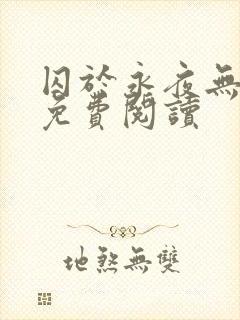 囚於永夜無
免費閱讀
地煞無雙